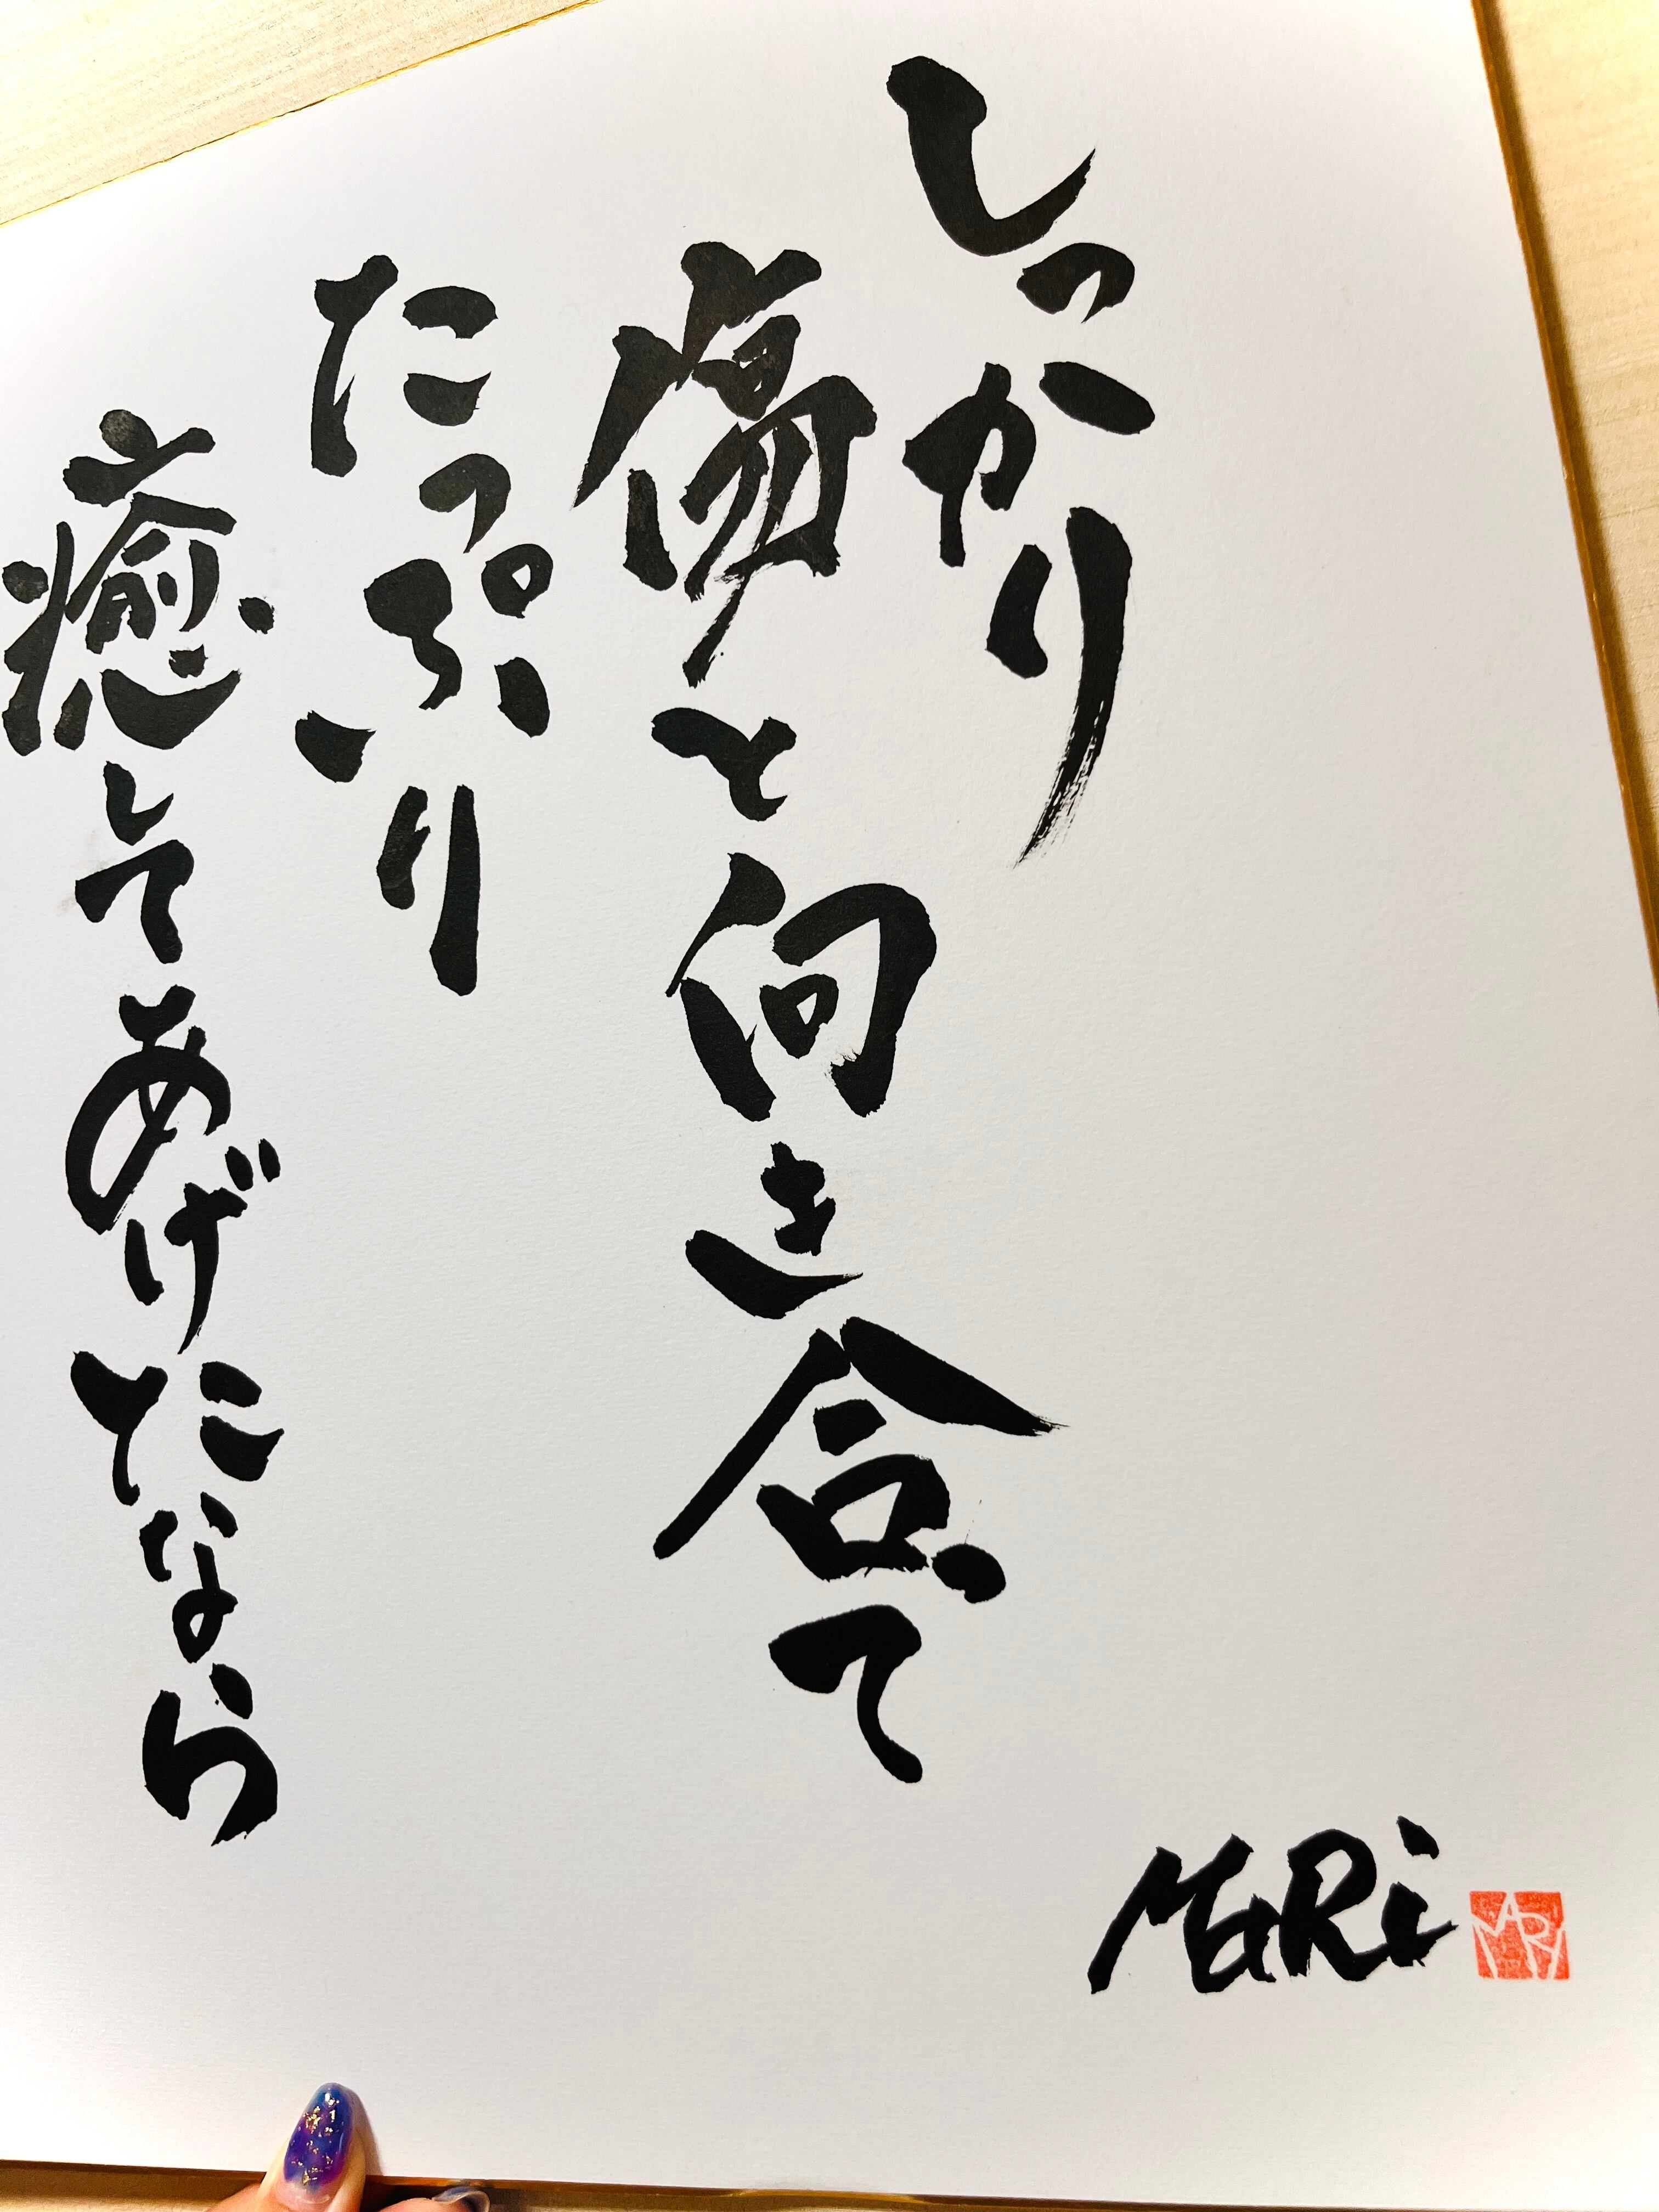 しっかり
傷と向き合って
たっぷり
癒してあげたなら
MaRi
MARI